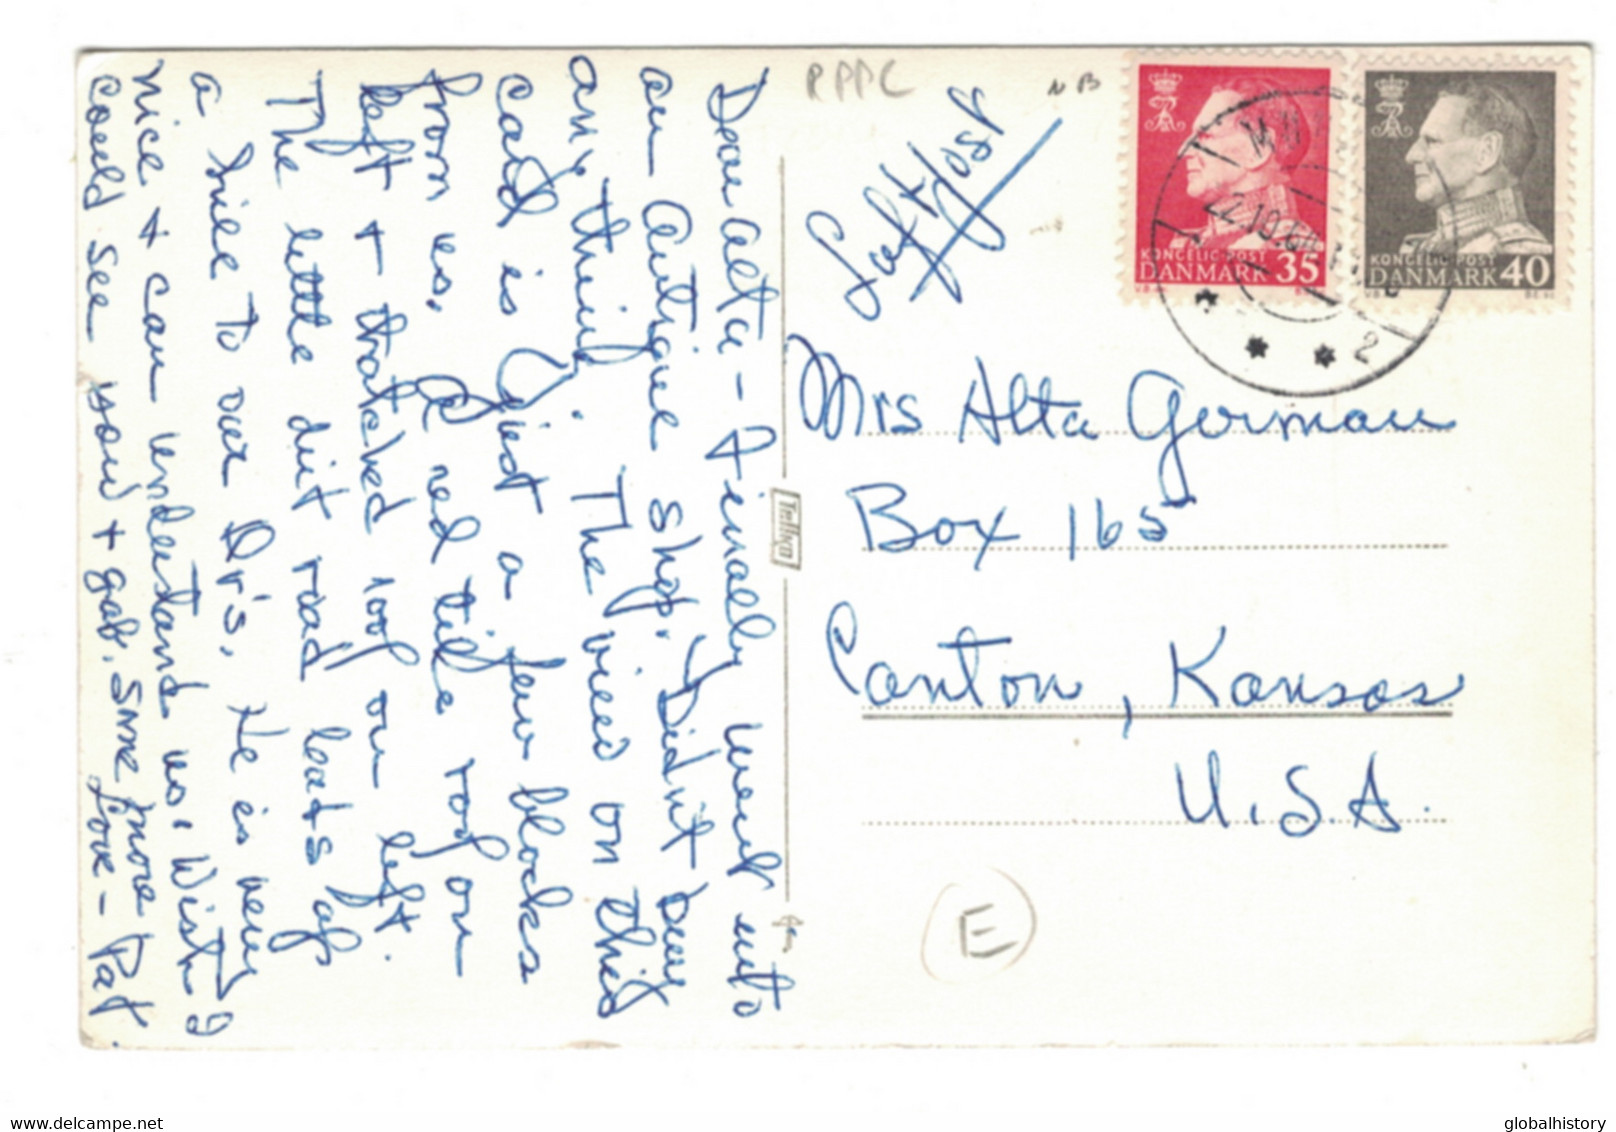 Dear Alta - Finally went into
an Antique shop. Didn't buy
any thing. The view on this
card is just a few blocks
from us. A red tile roof on
left & thatched roof on left.
The little dirt road leads off
a mile to our Dr's. He is very
nice & can understand us. Wish I
could see you & gab. Some more
Love - Pat.
RPPC
NB
Luft Post
KONGELIG POST
DANMARK 35
KONGELIG POST
DANMARK 40
22.10.6
2
Mrs Alta German
Box 165
Canton, Kansas
U.S.A.
E
www.delcampe.net
globalhistory